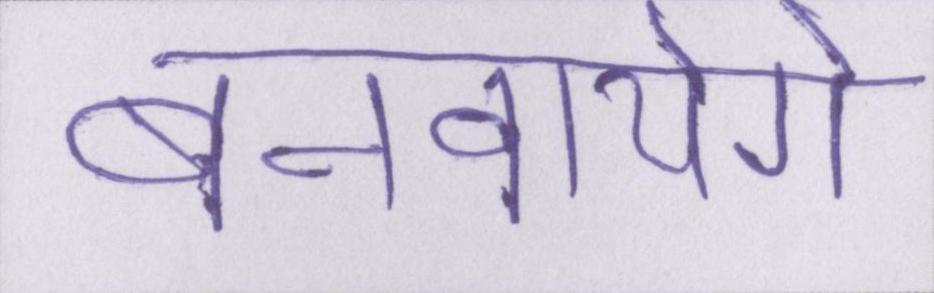 बनवायेगे